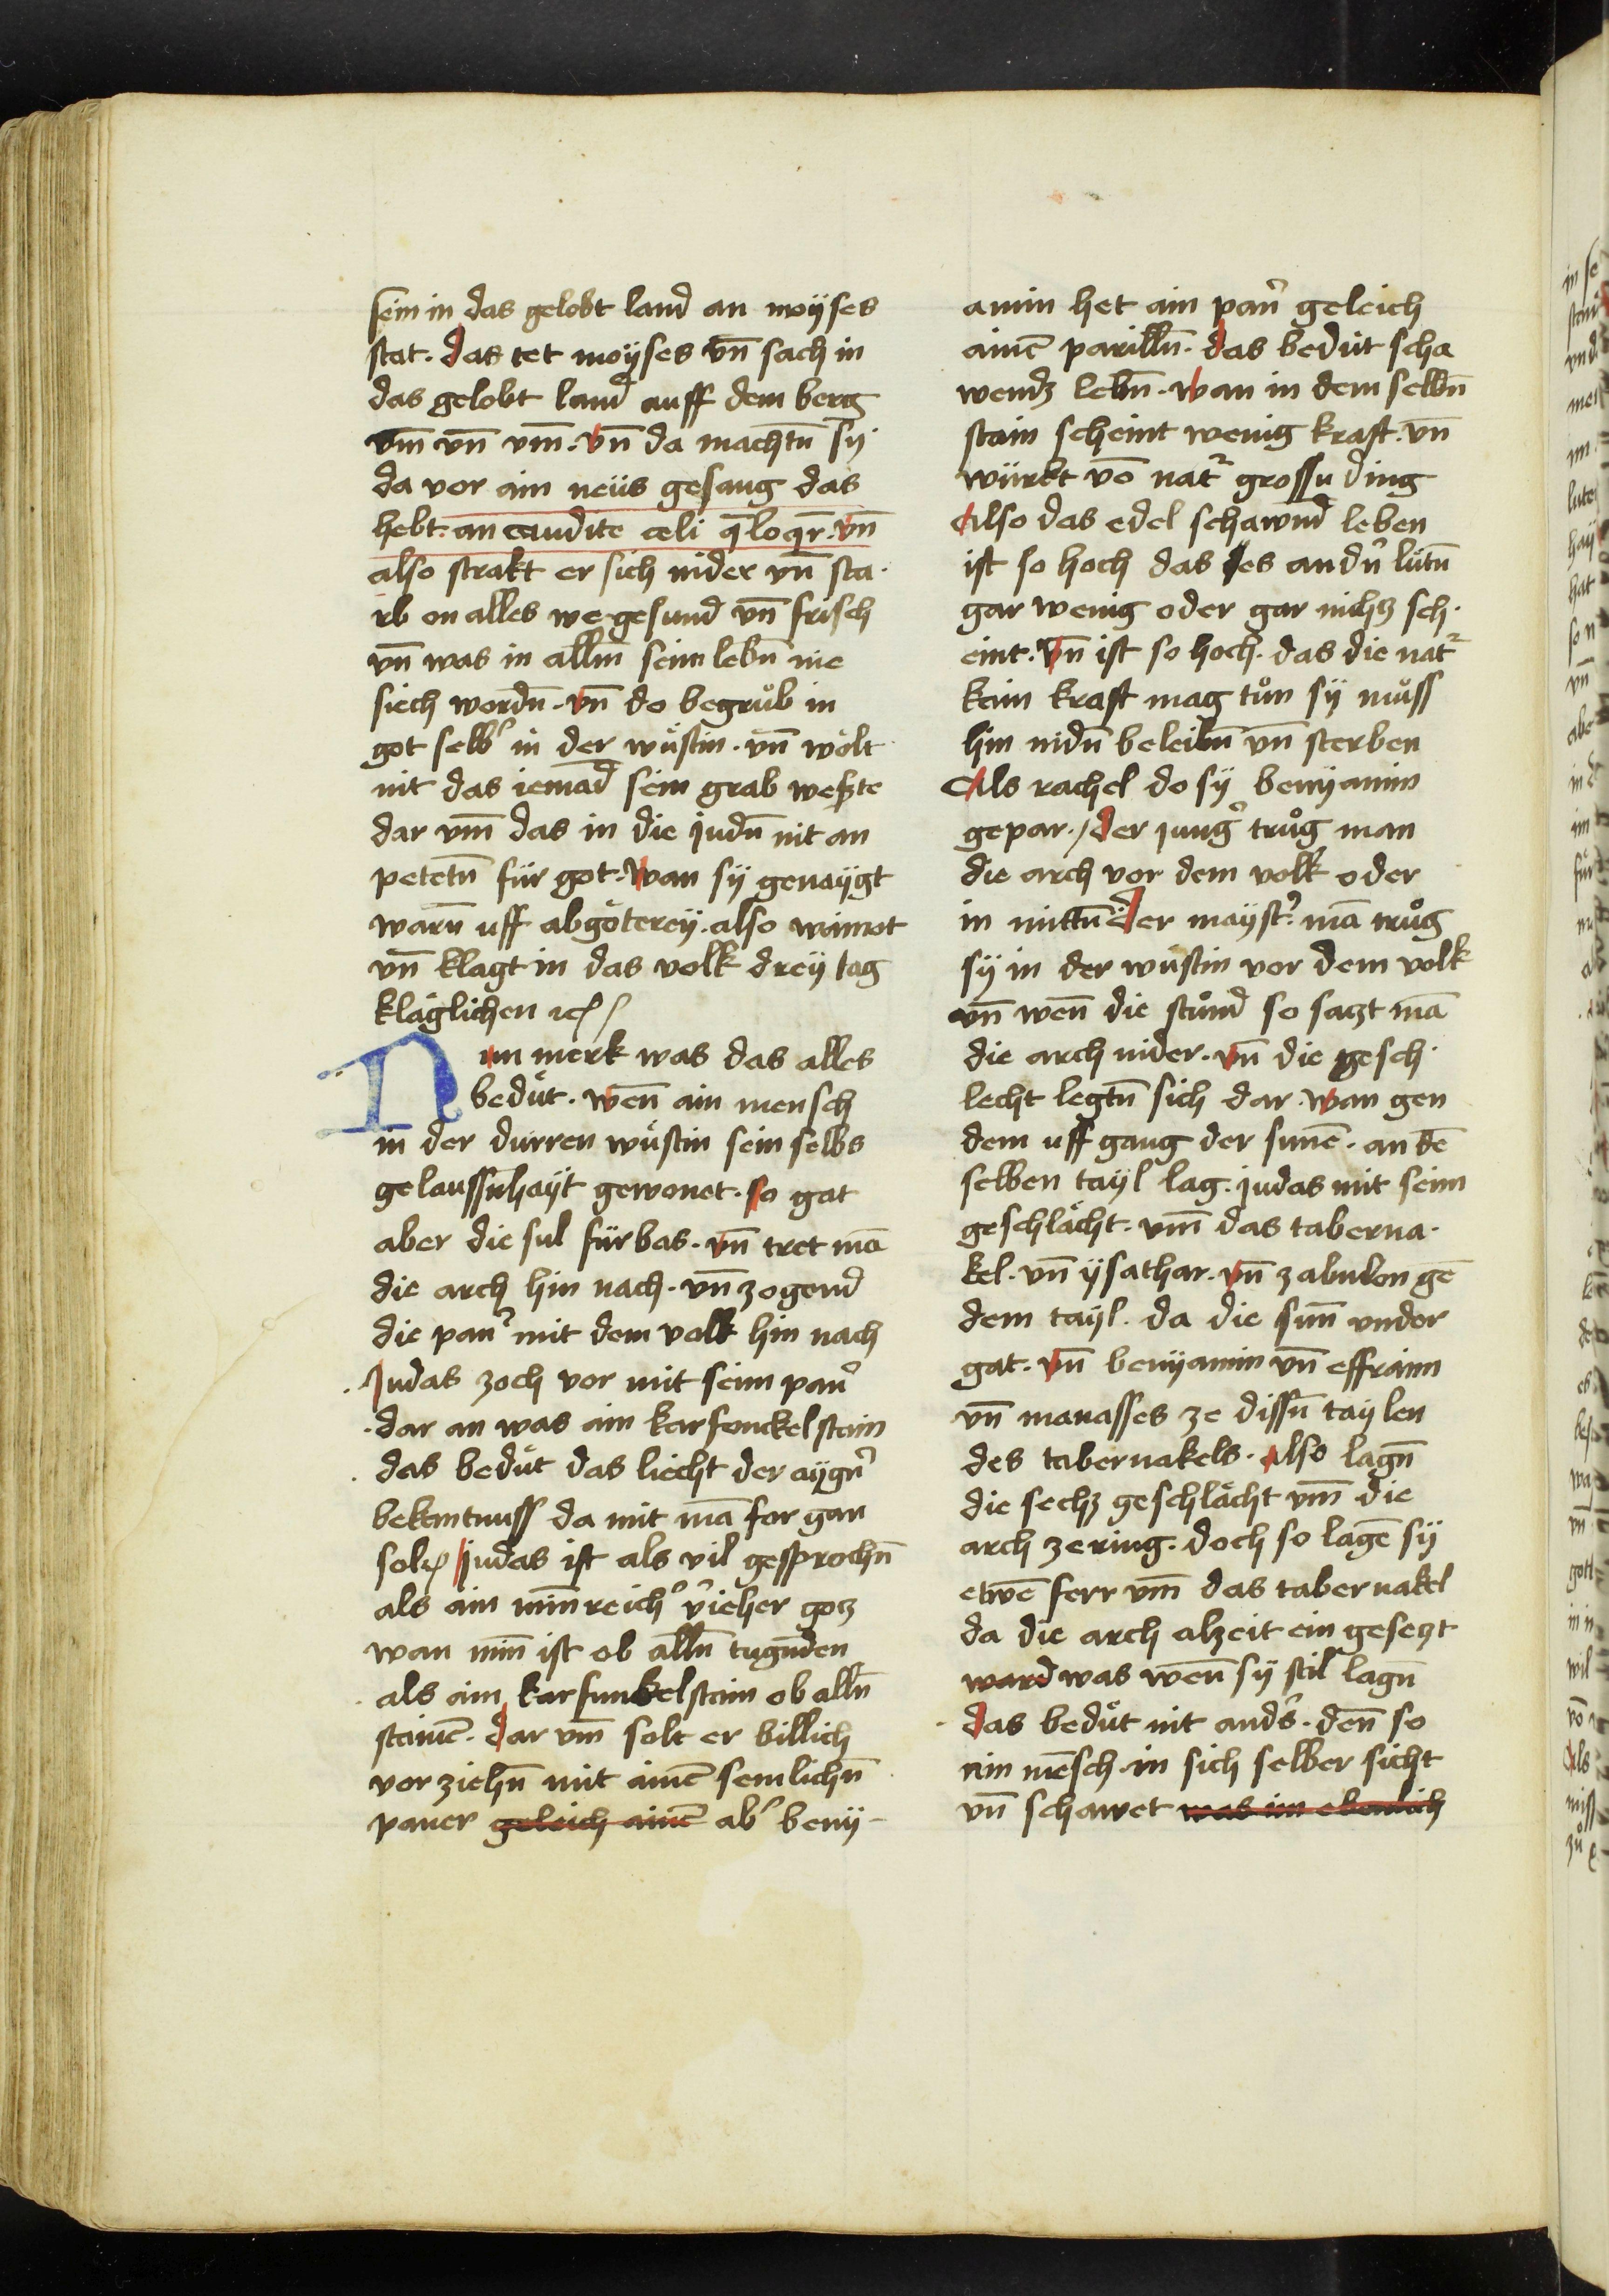 sein in das gelobt land an moÿses
stat. das tet moÿses vn̄ sach in
das gelobt land auff dem berg
vm̄ vn̄ vm̄. vn̄ da machtn̄ sÿ
da vor ain neüs gesang das
hebt. an caudite celi q̄ loqr̄. vn̄
also strakt er sich nider vn̄ sta·
rb on alles we gesund vn̄ frisch
vn̄ was in allm̄ seim lebn̄ nie
siech wordn̄. vn̄ do begrůb in
got selb᷒ in der wüstin. vn̄ wolt
nit das iemād sein grab weste
dar vm̄ das in die judn̄ nit an
petetn̄ für got. wan sÿ genaÿgt
warn̄ uff abgötereÿ. also wainot
vn̄ klagt in das volk dreÿ tag
kläglichen ꝛc
Nun merk was das alles
bedüt. wen̄ ain mensch
in der dürren wüstin sein selbs
gelaussn̄haÿt gewonet. so gat
aber die sul fürbas. vn̄ tret mā
die arch hin nach. vn̄ zogend
die pan᷒ mit dem volk hin nach
Judas zoch vor mit seim pan᷒
dar an was ain karfonckel stain
das bedüt das liecht der aÿgn᷒
bekantnuss da mit mā for gan
sol. Judas ist als vil gesprochn̄
als ain min̄reich᷒ v᷒ieher gotz
wan min̄ ist ob alln̄ tugn̄den
als ain karfunkelstain ob alln̄
stainē. dar vm̄ solt er billich
vor ziehn̄ mit ainē semlichn̄
paner geleich ainē ab᷒ benÿ-
amin het ain pan᷒ geleich
ainē parilln̄. das bedüt scha
wendz lebn̄. wan in dem selbn̄
stain scheint wenig kraft. vn̄
würkt vō nat᷒ grossu ding
Also das edel schawnd leben
ist so hoch das es andn᷒ lütn̄
gar wenig oder gar nichz sch·
eint. vn̄ ist so hoch. das die nat᷒
kain kraft mag tůn sÿ můss
hin nidn̄ beleibn̄ vn̄ sterben
Als rachel do sÿ benÿamin
gepar. / der jung᷒ trůg man
die arch vor dem volk oder
in mittn̄ der maÿst᷒. mā trůg
sÿ in der wüstin vor dem volk
vn̄ wen̄ die stůnd so satzt mā
die arch nider. vn̄ die gesch·
lecht legtn̄ sich dar. wan gen
dem uff gang der sunē. an dē
selben taÿl lag. judas mit seim
geschlächt. vm̄ das taberna·
kel. vn̄ ÿsathar. vn̄ zabulon gē
dem taÿl. da die sun̄ vnder
gat. vn̄ benÿamin vn̄ effraim
vn̄ manasses ze dissn̄ taÿlen
des tabernakels. Also lagn̄
die sechz geschlächt vm̄ die
arch zering. doch so lagē sÿ
etwē ferr vm̄ das tabernakel
da die arch alzeit ein gesetzt
ward was wen̄ sÿ stil lagn̄
das bedüt nit and᷒s. den̄ so
ain mēsch in sich selber sicht
vn̄ schawet was im ebenlich